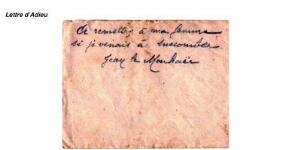 Lettre d'Adieu
A remettre à ma femme
si je venais à succomber
Jean le